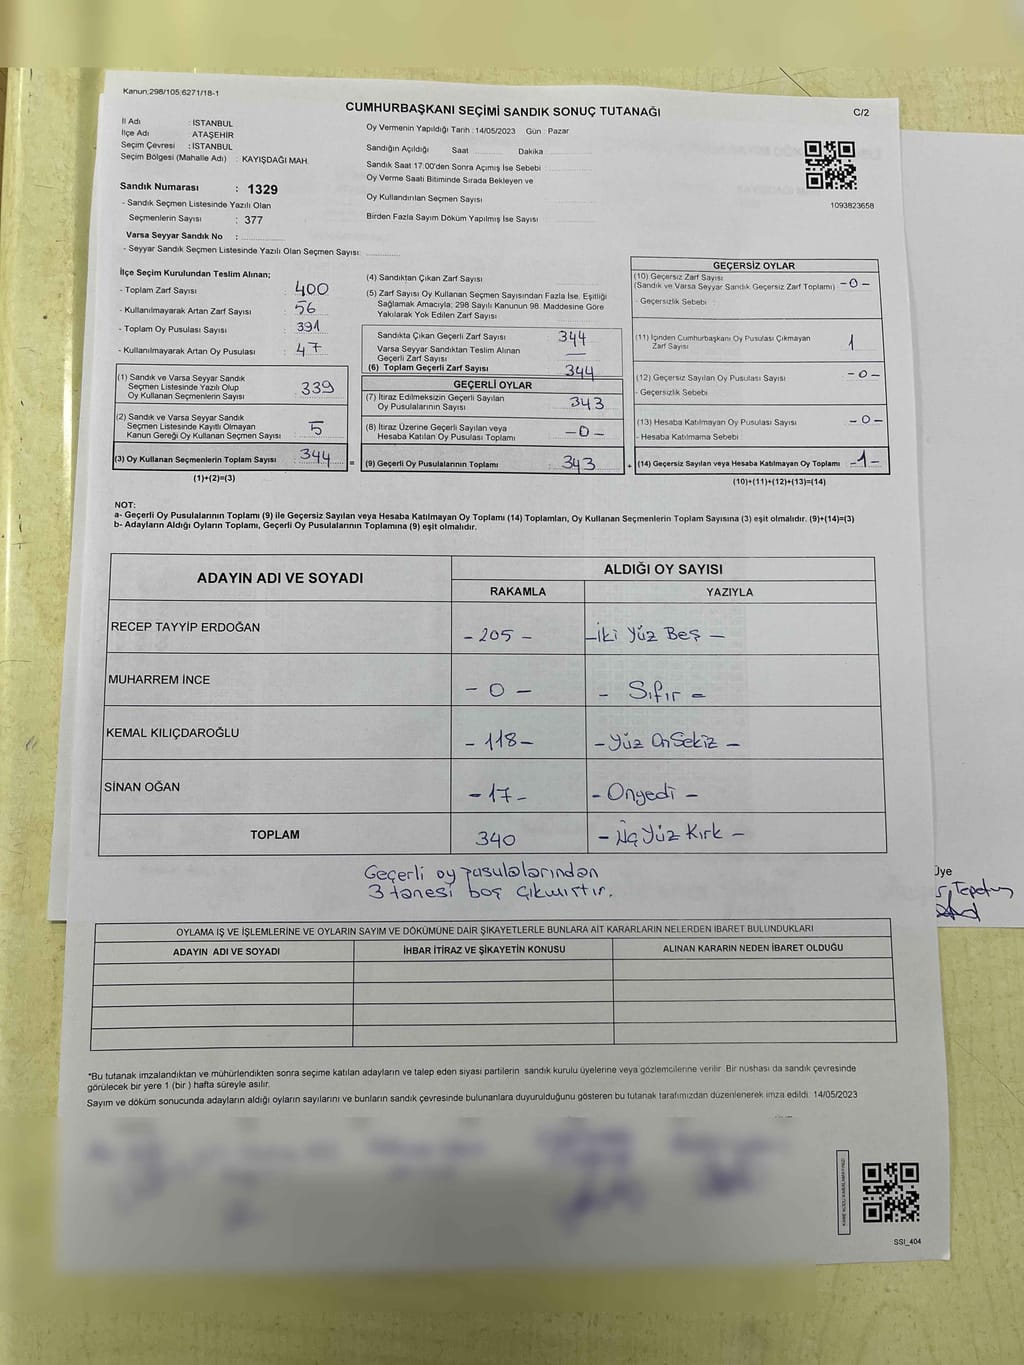 Kanun:298/105,6271/18-1
CUMHURBAŞKANI SEÇİMİ SANDIK SONUÇ TUTANAĞI
C/2
İl Adı : İSTANBUL
İlçe Adı : ATAŞEHİR
Seçim Çevresi : İSTANBUL
Seçim Bölgesi (Mahalle Adı) : KAYIŞDAĞI MAH.
Sandık Numarası : 1329
- Sandık Seçmen Listesinde Yazılı Olan
Seçmenlerin Sayısı : 377
Varsa Seyyar Sandık No :
- Seyyar Sandık Seçmen Listesinde Yazılı Olan Seçmen Sayısı:
Oy Vermenin Yapıldığı Tarih : 14/05/2023 Gün : Pazar
Sandığın Açıldığı Saat Dakika
Sandık Saat 17:00'den Sonra Açımış İse Sebebi
Oy Verme Saati Bitiminde Sırada Bekleyen ve
Oy Kullandırılan Seçmen Sayısı
Birden Fazla Sayım Döküm Yapılmış İse Sayısı
1093823658
İlçe Seçim Kurulundan Teslim Alınan;
- Toplam Zarf Sayısı : 400
- Kullanılmayarak Artan Zarf Sayısı : 56
- Toplam Oy Pusulası Sayısı : 391
- Kullanılmayarak Artan Oy Pusulası : 47
(1) Sandık ve Varsa Seyyar Sandık
Seçmen Listesinde Yazılı Olup
Oy Kullanan Seçmenlerin Sayısı : 339
(2) Sandık ve Varsa Seyyar Sandık
Seçmen Listesinde Kayıtlı Olmayan
Kanun Gereği Oy Kullanan Seçmen Sayısı : 5
(3) Oy Kullanan Seçmenlerin Toplam Sayısı : 344 =
(1)+(2)=(3)
(4) Sandıktan Çıkan Zarf Sayısı
(5) Zarf Sayısı Oy Kullanan Seçmen Sayısından Fazla İse, Eşitliği
Sağlamak Amacıyla; 298 Sayılı Kanunun 98. Maddesine Göre
Yakılarak Yok Edilen Zarf Sayısı
Sandıkta Çıkan Geçerli Zarf Sayısı : 344
Varsa Seyyar Sandıktan Teslim Alınan
Geçerli Zarf Sayısı : —
(6) Toplam Geçerli Zarf Sayısı : 344
GEÇERLİ OYLAR
(7) İtiraz Edilmeksizin Geçerli Sayılan
Oy Pusulalarının Sayısı : 343
(8) İtiraz Üzerine Geçerli Sayılan veya
Hesaba Katılan Oy Pusulası Toplamı : -0-
(9) Geçerli Oy Pusulalarının Toplamı : 343 +
GEÇERSİZ OYLAR
(10) Geçersiz Zarf Sayısı
(Sandık ve Varsa Seyyar Sandık Geçersiz Zarf Toplamı) -0-
- Geçersizlik Sebebi :
(11) İçinden Cumhurbaşkanı Oy Pusulası Çıkmayan
Zarf Sayısı 1
(12) Geçersiz Sayılan Oy Pusulası Sayısı -0-
- Geçersizlik Sebebi
(13) Hesaba Katılmayan Oy Pusulası Sayısı -0-
- Hesaba Katılmama Sebebi
(14) Geçersiz Sayılan veya Hesaba Katılmayan Oy Toplamı -1-
(10)+(11)+(12)+(13)=(14)
NOT:
a- Geçerli Oy Pusulalarının Toplamı (9) ile Geçersiz Sayılan veya Hesaba Katılmayan Oy Toplamı (14) Toplamları, Oy Kullanan Seçmenlerin Toplam Sayısına (3) eşit olmalıdır. (9)+(14)=(3)
b- Adayların Aldığı Oyların Toplamı, Geçerli Oy Pusulalarının Toplamına (9) eşit olmalıdır.
ADAYIN ADI VE SOYADI
ALDIĞI OY SAYISI
RAKAMLA YAZIYLA
RECEP TAYYİP ERDOĞAN - 205 - - İki Yüz Beş -
MUHARREM İNCE - 0 - - Sıfır -
KEMAL KILIÇDAROĞLU - 118 - - Yüz OnSekiz -
SİNAN OĞAN - 17 - - Onyedi -
TOPLAM 340 - Üç Yüz Kırk -
Geçerli oy pusulalarından
3 tanesi boş çıkmıştır.
Üye
OYLAMA İŞ VE İŞLEMLERİNE VE OYLARIN SAYIM VE DÖKÜMÜNE DAİR ŞİKAYETLERLE BUNLARA AİT KARARLARIN NELERDEN İBARET BULUNDUKLARI
ADAYIN ADI VE SOYADI İHBAR İTİRAZ VE ŞİKAYETİN KONUSU ALINAN KARARIN NEDEN İBARET OLDUĞU
*Bu tutanak imzalandıktan ve mühürlendikten sonra seçime katılan adayların ve talep eden siyasi partilerin sandık kurulu üyelerine veya gözlemcilerine verilir. Bir nüshası da sandık çevresinde
görülecek bir yere 1 (bir ) hafta süreyle asılır.
Sayım ve döküm sonucunda adayların aldığı oyların sayılarını ve bunların sandık çevresinde bulunanlara duyurulduğunu gösteren bu tutanak tarafımızdan düzenlenerek imza edildi. 14/05/2023
SSI_404